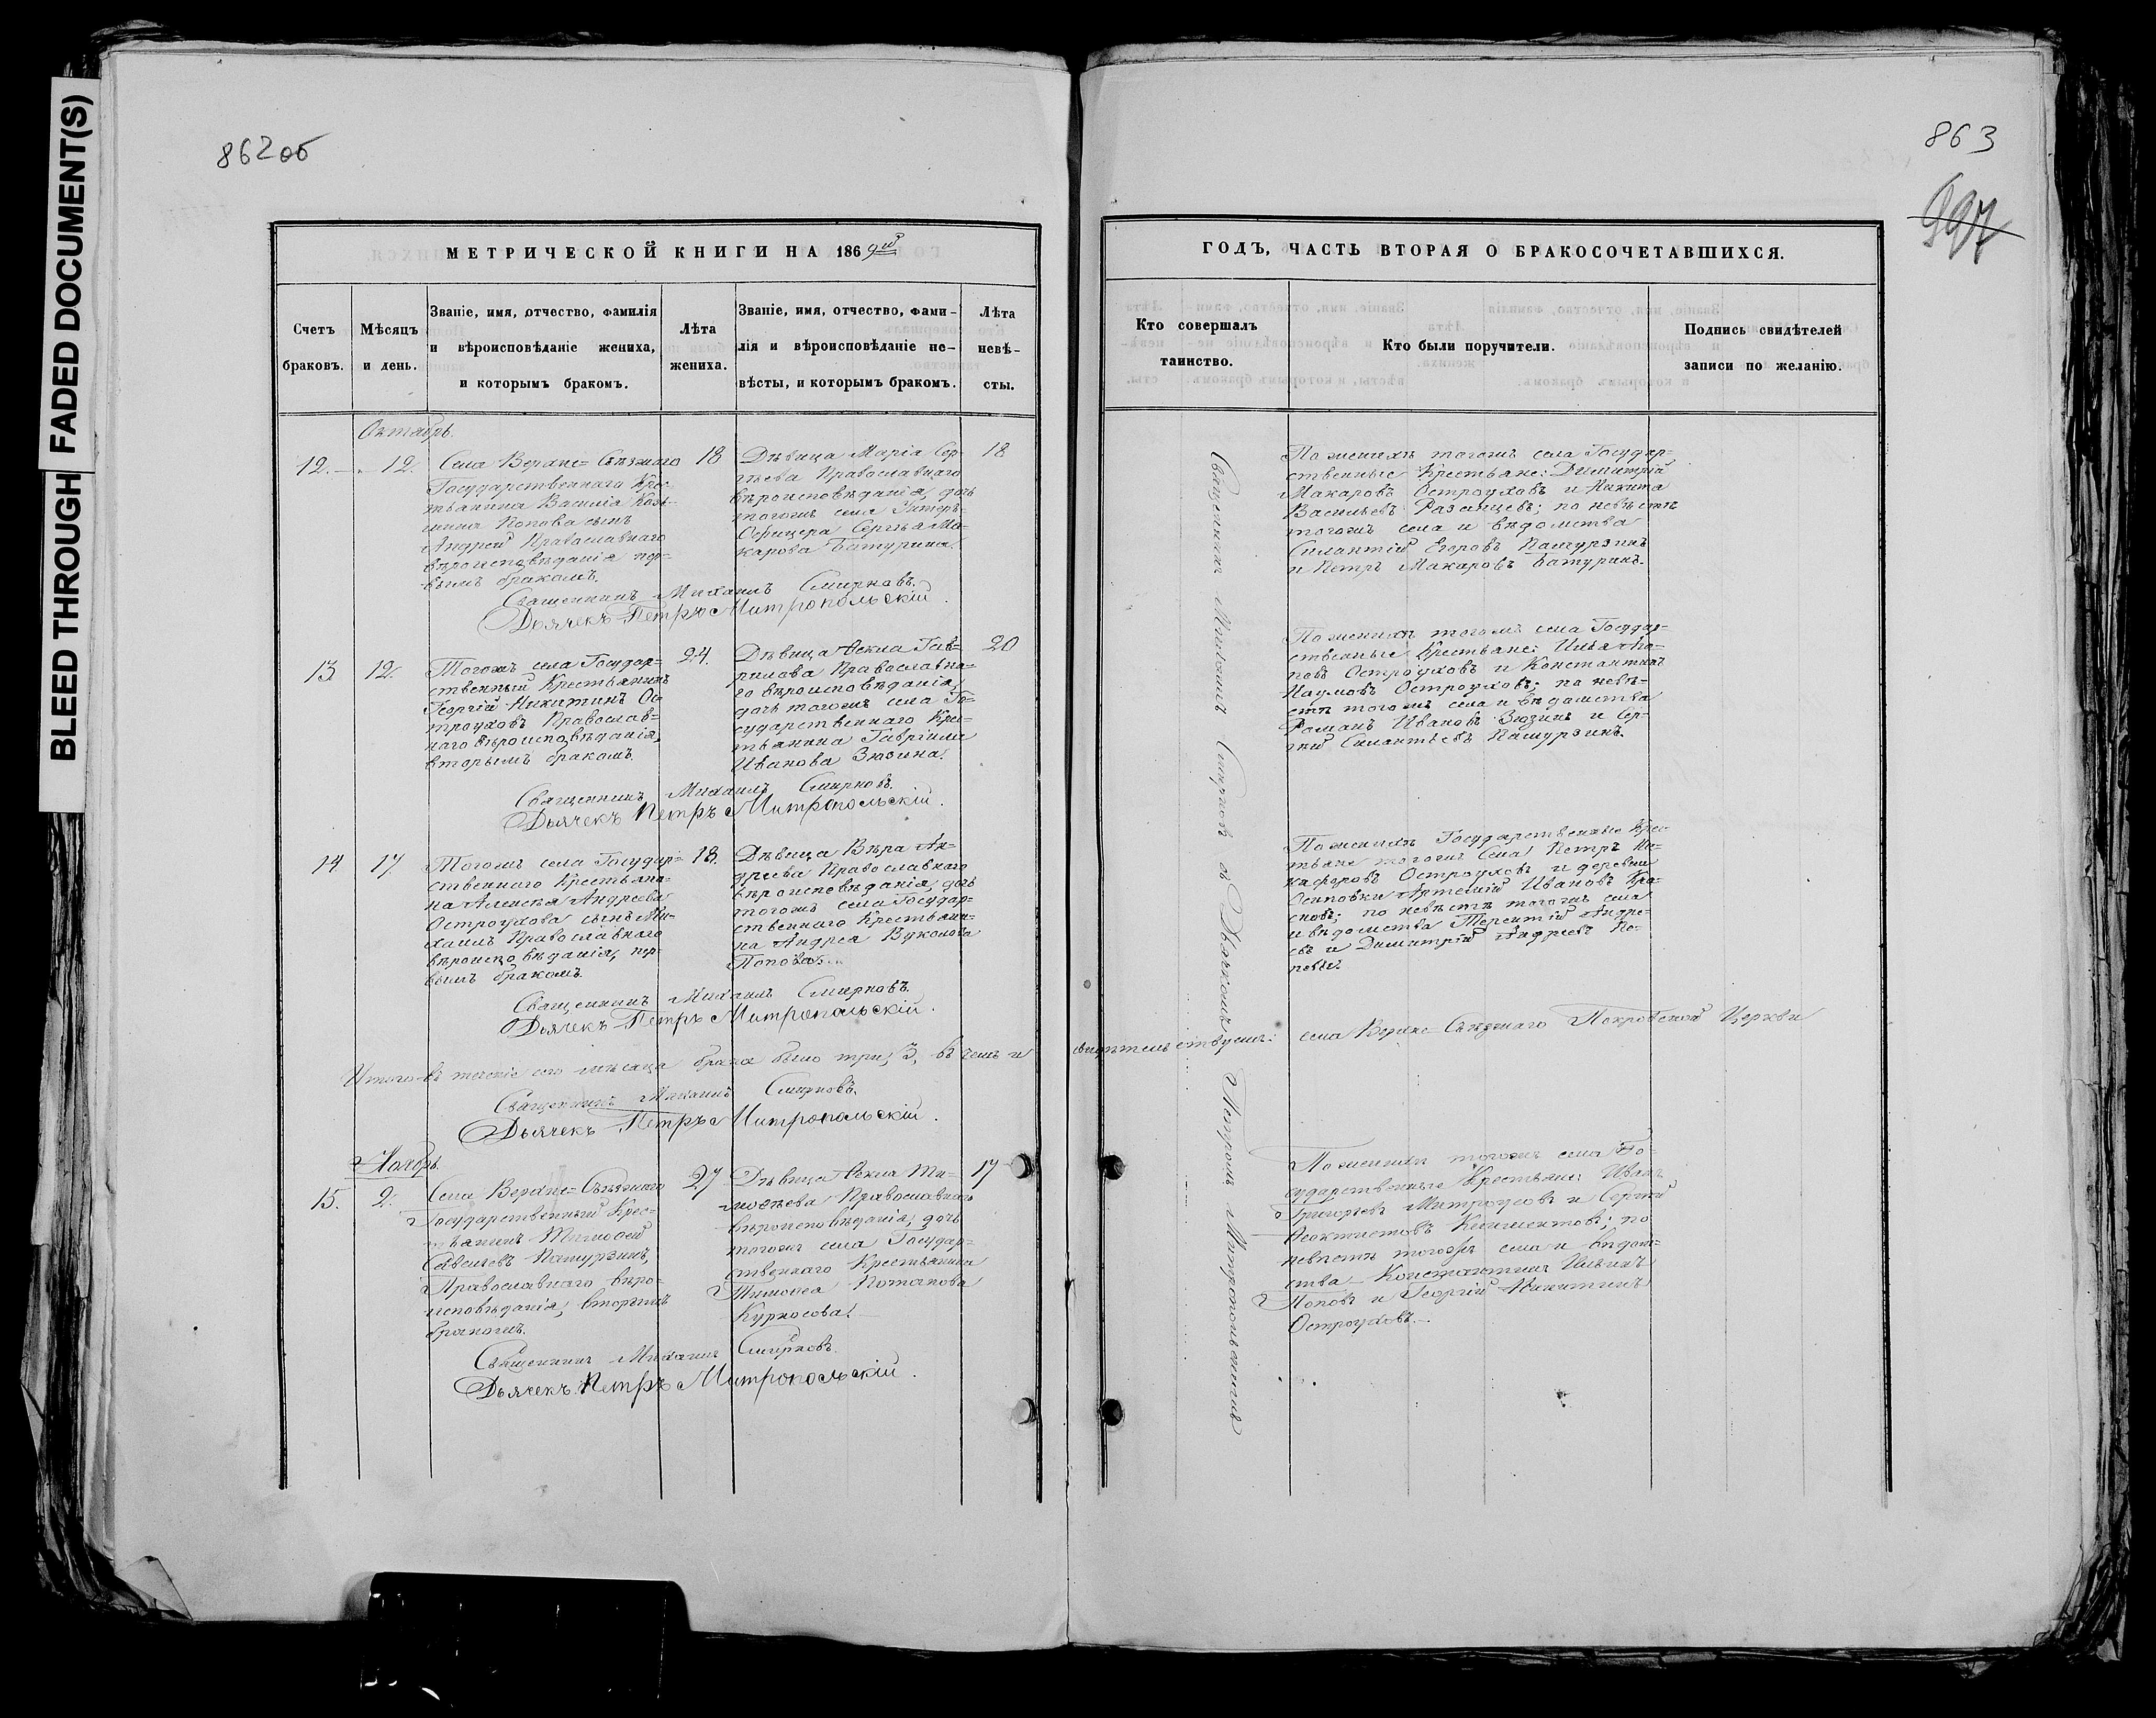 BLEED THROUGH
FADED DOCUMENT(S)
862об
МЕТРИЧЕСКОЙ КНИГИ НА 1869й
Счетъ браковъ.
Мѣсяцъ и день.
Званіе, имя, отчество, фамилія
и вѣроисповѣданіе жениха,
и которымъ бракомъ.
Лѣта
жениха.
Званіе, имя, отчество, фами-
лія и вѣроисповѣданіе не-
вѣсты, и которымъ бракомъ.
Лѣта
невѣ-
сты.
Октябрь.
12. 12.
Села Верхне=Съѣзжаго
Государственнаго Крес-
тьянина Василія Козь-
мина Попова сынъ
Андрей Православнаго
вѣроисповѣданія пер-
вымъ бракомъ.
18
Дѣвица Марія Сер-
гѣева Православнаго
вѣроисповѣданія, дочь
тогожъ села Унтеръ-
Офицера Сергѣя Ма-
карова Батурина.
18
Священникъ Михаилъ Смирновъ.
Дьячекъ Петръ Митропольскій.
13 12.
Тогожъ села Государ=
ственный Крестьянинъ
Георгій Никитинъ Ос-
троуховъ Православ=
наго вѣроисповѣданія,
вторымъ бракомъ.
24.
Дѣвица Ѳекла Гав-
рилова Православна-
го вѣроисповѣданія,
дочь тогожъ села Го-
сударственнаго Крес-
тьянина Гавріила
Иванова Зюзина.
20
Священникъ Михаилъ Смирновъ.
Дьячекъ Петръ Митропольскій.
14 17.
Тогожъ села Государ-
ственнаго Крестьяни-
на Алексѣя Андреева
Остроухова сынъ Ми-
хаилъ Православнаго
вѣроисповѣданія, пер-
вымъ бракомъ.
18.
Дѣвица Вѣра Ан-
дреева Православнаго
вѣроисповѣданія, дочь
тогожъ села Государ-
ственнаго Крестьяни-
на Андрея Вуколова
Попова.
Священникъ Михаилъ Смирновъ.
Дьячекъ Петръ Митропольскій.
Итого въ теченіе сего мѣсяца брака было три, 3, въ чемъ и
Священникъ Михаилъ Смирновъ.
Дьячекъ Петръ Митропольскій.
Ноябрь.
15. 2.
Села Верхне=Съѣзжаго
Государственный Крес-
тьянинъ Тимофей
Савельевъ Пашурзинъ,
Православнаго вѣро-
исповѣданія, вторымъ
бракомъ.
27
Дѣвица Ѳекла Ти-
моѳеева Православнаго
вѣроисповѣданія, дочь
тогожъ села Государ-
ственнаго Крестьянина
Тимоѳея Потапова
Курносова.
17
Священникъ Михаилъ Смирновъ.
Дьячекъ Петръ Митропольскій.
863
997
ГОДЪ, ЧАСТЬ ВТОРАЯ О БРАКОСОЧЕТАВШИХСЯ.
Кто совершалъ
таинство.
Кто были поручители.
Подпись свидѣтелей
записи по желанію.
Священникъ Михаилъ Смирновъ съ Дьячкомъ Петромъ Митропольскимъ
По женихѣ тогожъ села Государ=
ственные Крестьяне: Димитрій
Макаровъ Остроуховъ и Никита
Васильевъ Разинцевъ; по невѣстѣ
тогожъ села и вѣдомства
Силантій Егоровъ Пашурзинъ
и Петръ Макаровъ Батуринъ.
По женихѣ тогожъ села Государ-
ственные Крестьяне: Илья
Остроуховъ и Константинъ
Наумовъ Остроуховъ; по невѣ-
стѣ тогожъ села и вѣдомства
Романъ Ивановъ Зюзинъ и Сер-
гѣй Силантьевъ Пашурзинъ.
По женихѣ Государственные Крес-
тьяне тогожъ Села Петръ Ни-
кифоровъ Остроуховъ и деревни
Осиповки Артемій Ивановъ Кра-
сновъ; по невѣстѣ тогожъ села
и вѣдомства Терентій Андре-
евъ и Димитрій Андреевъ По-
повы.
свидѣтельствуемъ: села Верхне-Съѣзжаго Покровской Церкви
По женихѣ тогожъ села Го-
сударственные Крестьяне: Иванъ
Григорьевъ Митрофовъ и Сергѣй
Ѳеоктистовъ Климентовъ; по
невѣстѣ тогожъ села и вѣдом-
ства Константинъ Ильинъ
Поповъ и Георгій Никитинъ
Остроуховъ.